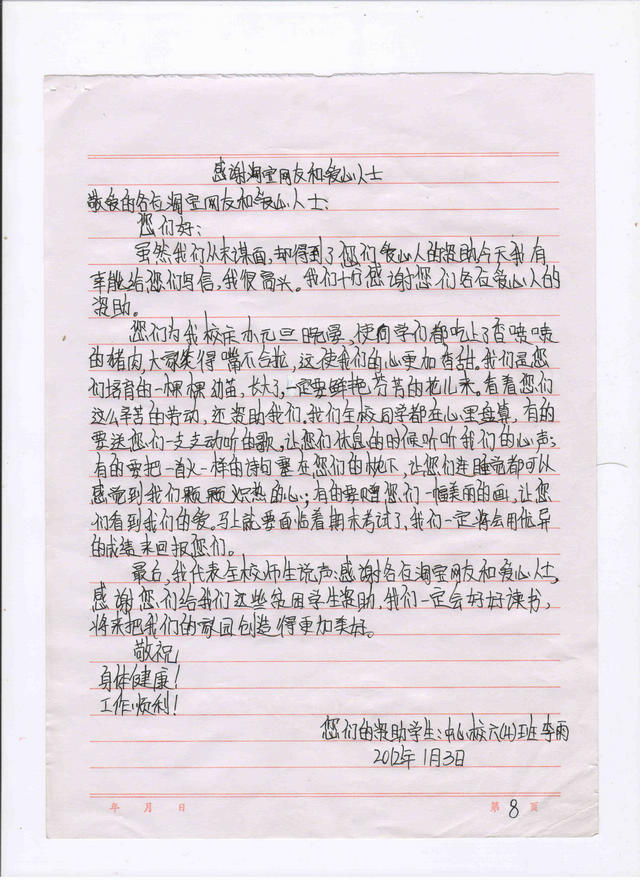 感谢淘宝网友和爱心人士
敬爱的各位淘宝网友和爱心人士:
您们好:
虽然我们从未谋面,却得到了您们爱心人的资助今天我有
幸能给您们写信,我很高兴。我们十分感谢您们各位爱心人的
资助。
您们为我校庆办元旦晚宴,使同学们都吃上了香喷喷
的猪肉,大家笑得嘴不合拢,这使我们的心更加香甜。我们是您
们培育的一棵棵幼苗,长大了,一定要鲜艳芬芳的花儿来。看着您们
这么辛苦的劳动,还资助我们。我们全校同学都在心里盘算,有的
要送您们一支支动听的歌,让您们休息的时候听听我们的心声;
有的要把一首火一样的诗句塞在您们的枕下,让您们连睡觉都可以
感觉到我们颗颗炽热的心;有的要赠您们一幅美丽的画,让您
们看到我们的爱。马上就要面临着期末考试了,我们一定将会用优异
的成绩来回报您们。
最后,我代表全校师生说声:感谢各位淘宝网友和爱心人士,
感谢您们给我们这些贫困学生资助,我们一定会好好读书,
将来把我们的家园创造得更加美好。
敬祝
身体健康!
工作顺利!
您们的资助学生:中心校六(4)班李雨
2012年1月3日
年 月 日 第 8 页